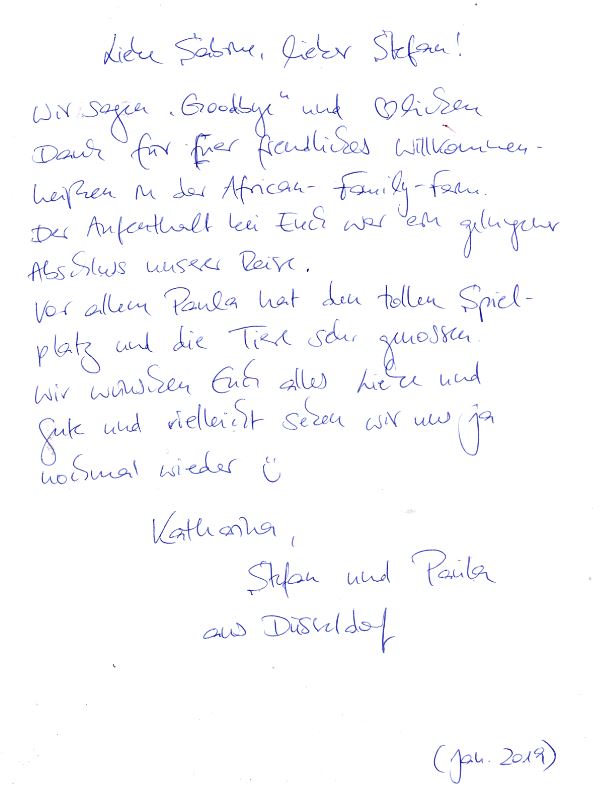 Liebe Sabine, lieber Stefan!
Wir sagen „Goodbye" und ♡lichen
Dank für Euer freundliches Willkommen-
heißen in der African-Family-Farm.
Der Aufenthalt bei Euch war ein gelungener
Abschluss unserer Reise.
Vor allem Paula hat den tollen Spiel-
platz und die Tiere sehr genossen.
Wir wünschen Euch alles Liebe und
Gute und vielleicht sehen wir uns ja
nochmal wieder ☺
Katharina,
Stefan und Paula
aus Düsseldorf
(Jan. 2019)